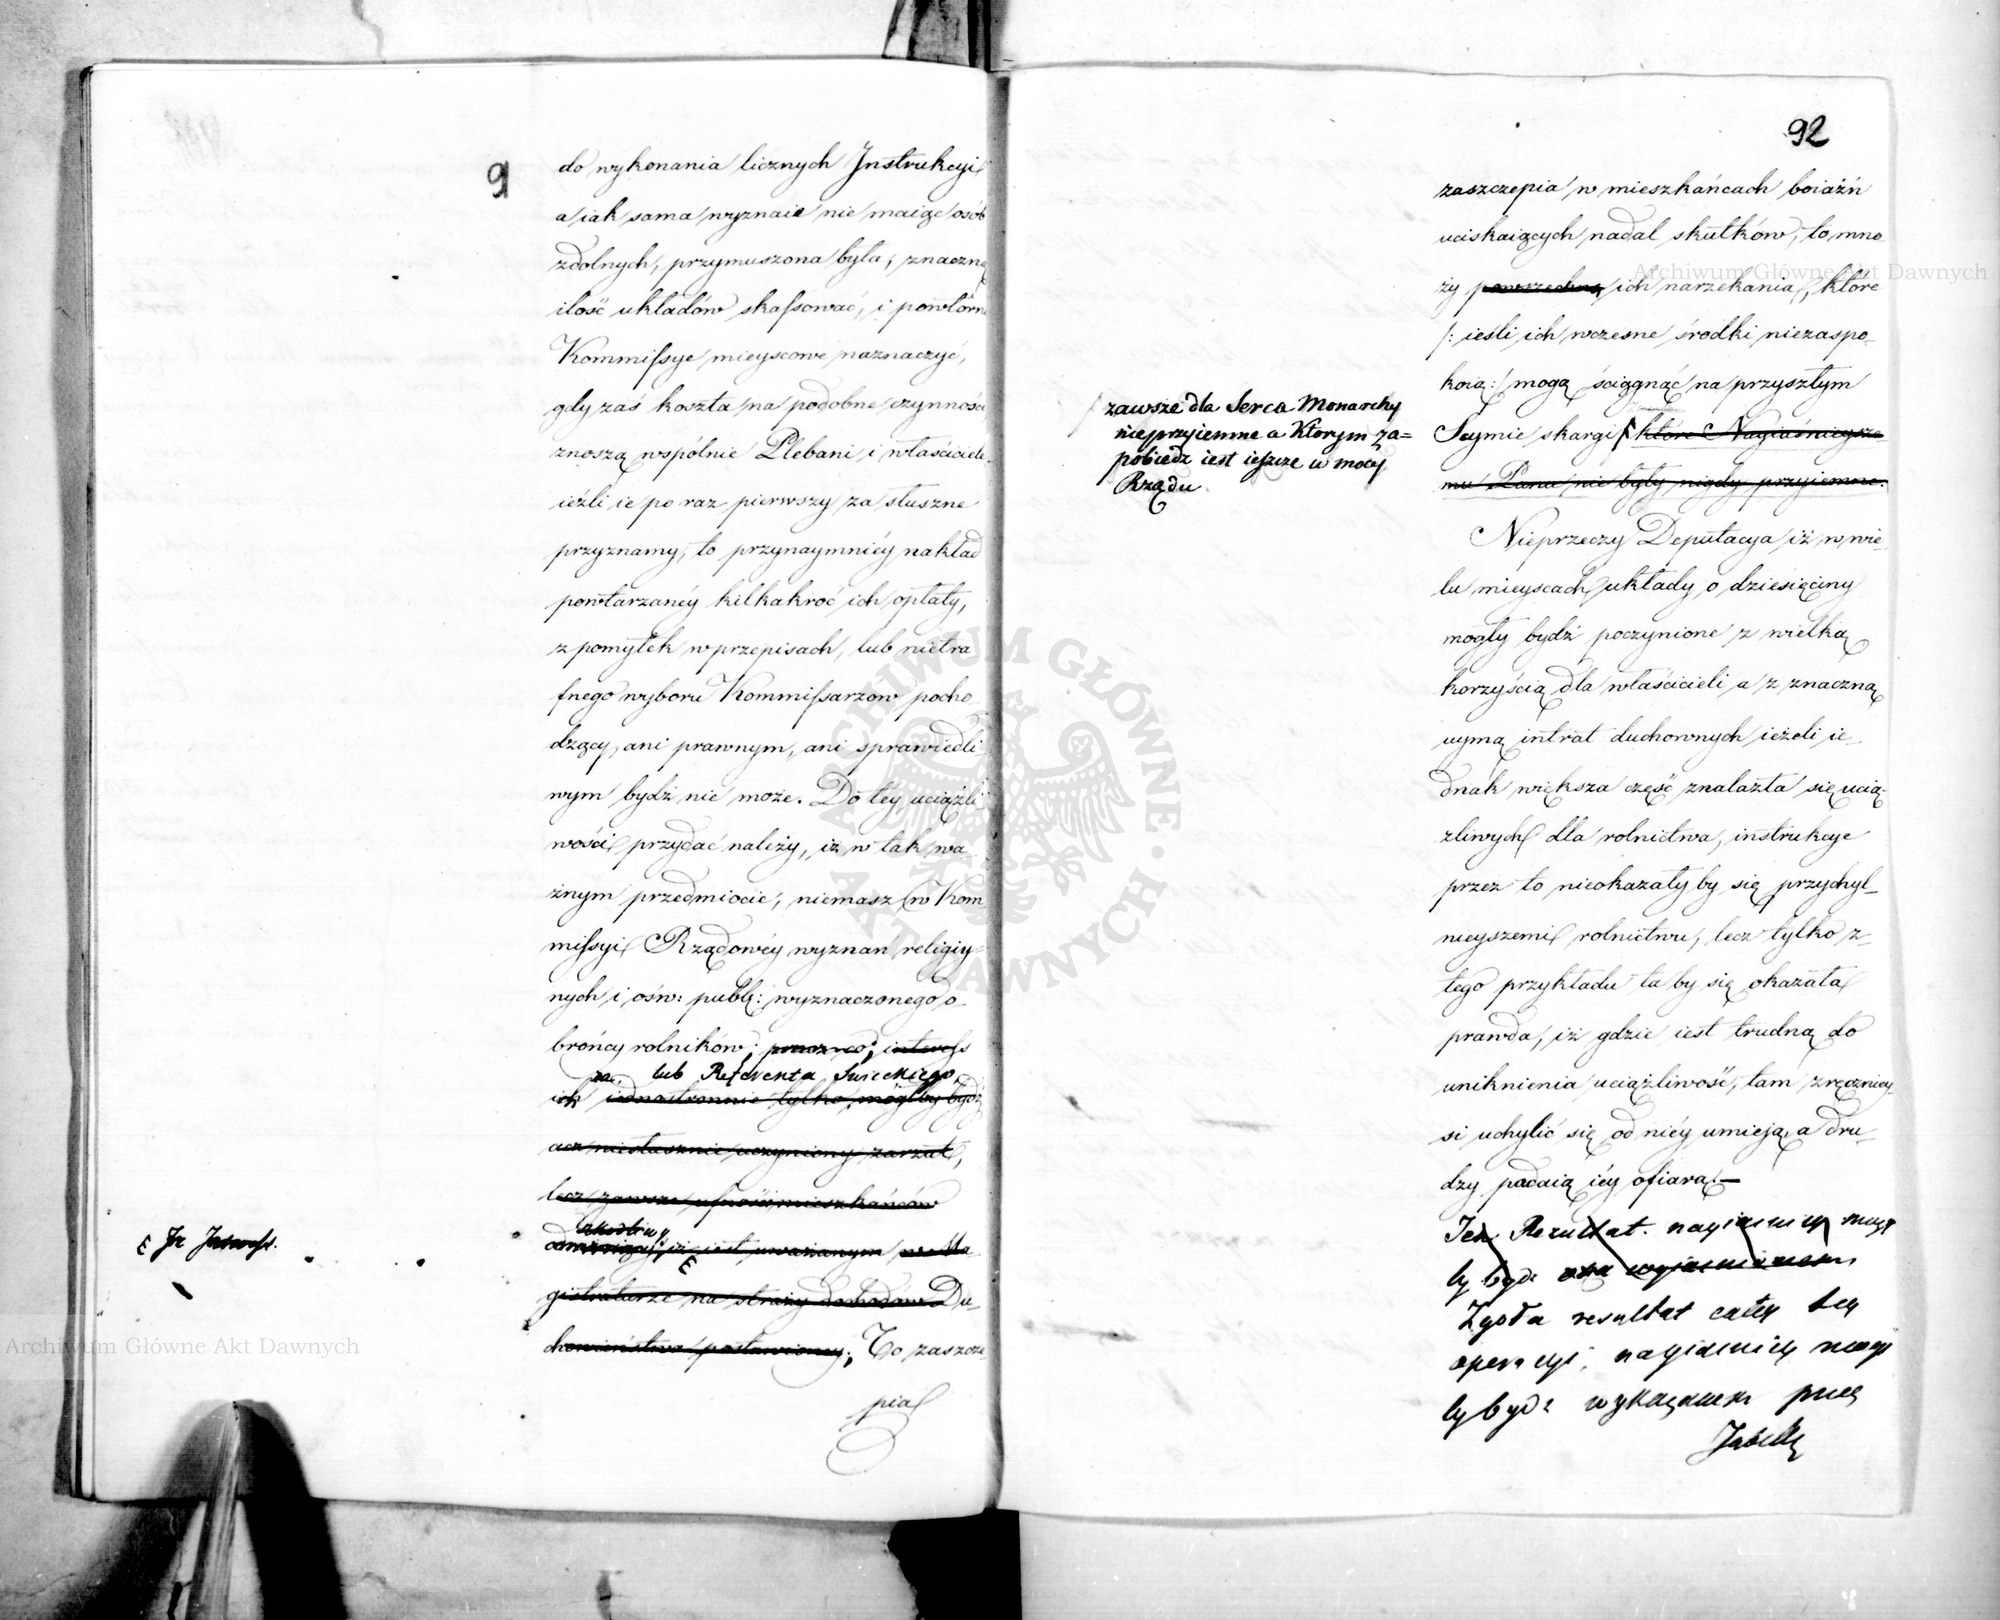 9
do wykonania licznych Instrukcyi
a iak sama wyznaie nie maiąc osób
zdolnych, przymuszona była, znaczną
ilość układów skassować, i powtórne
Kommissye mieyscowe naznaczyć,
gdy zaś koszta na podobne czynności
znoszą wspólnie Plebani i właściciele
ieżli ie po raz pierwszy za słuszne
przyznamy, to przynaymniéy nakład
powtarzanéy kilkakroć ich opłaty,
z pomyłek w przepisach, lub nietra
fnego wyboru Kommissarzow pocho
dzący, ani prawnym, ani sprawiedli
wym bydź nie może. Do tey uciążli
wości przydać należy, iż w tak wa-
żnym przedmiocie, niemasz w Kom
missyi Rządowéy wyznań religiy-
nych i ośw: publ: wyznaczonego o-
brońcy rolników, interess
lub Referenta Swieckiego,
ich iednostronnie tylko mógłby bydź
acz niesłusznie uczyniony zarzut,
lecz zawsze ufność mieszkańców
iż iest uważanym
gistraturze na straży dochodów Du-
chowieństwa postawioney; To zaszcze
pia
92
zaszczepia w mieszkańcach boiaźń
uciskaiących nadal skutków, to mno
ży powszechne ich narzekania, które
/: ieśli ich wczesne środki niezaspo-
koią :/ mogą ściągnąć na przyszłym
Seymie skargi które Nayiaśnieysze
mu Panu nie były nigdy przyiemne.
zawsze dla Serca Monarchy
nieprzyiemne a Ktorym za=
pobiedz iest ieszcze w mocy
Rządu
Nieprzeczy Deputacya iż w wie-
lu mieyscach układy o dziesięciny
mogły bydź poczynione z wielką
korzyścią dla właścicieli a z znaczną
uymą intrat duchownych ieżeli ie-
dnak większa część znalazła się ucią-
żliwych dla rolnictwa, instrukcye
przez to nieokazały by się przychyl-
nieyszemi rolnictwu, lecz tylko z
tego przykładu ta by się okazała
prawda, iż gdzie iest trudną do
uniknienia uciążliwość, tam zręczniey-
si uchylić się od niéy umieją, a dru-
dzy padaią iéy ofiarą.—
Ten Rezultat nayiaśniey mogł
by bydź
Zgoła resultat całey tey
operacyi, nayiaśniey mogł
by bydź wykazanem przez
Tabellę
Archiwum Główne Akt Dawnych
Archiwum Główne Akt Dawnych
ARCHIWUM GŁÓWNE AKT DAWNYCH